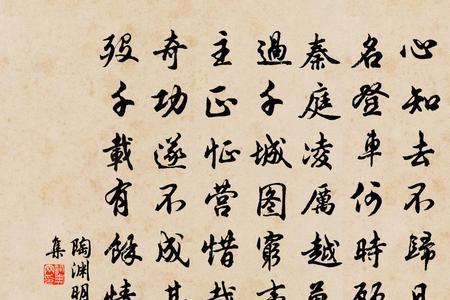 心知去不歸且
名登車何時
秦庭凌厲越萬
過千城图窮事
主正怔营惜哉
奇功遂不成其
殁千載有餘情
陶渊明
集